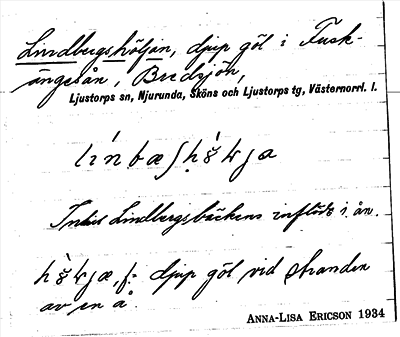 Lindbergshöljan, djup göl i Fusk-
ängesån, Bredsjön,
Ljustorps sn, Njurunda, Sköns och Ljustorps tg, Västernorrl. l.
Intill Lindbergsbäckens inflöde i ån.
djup göl vid stranden
av en å.
ANNA-LISA ERICSON 1934